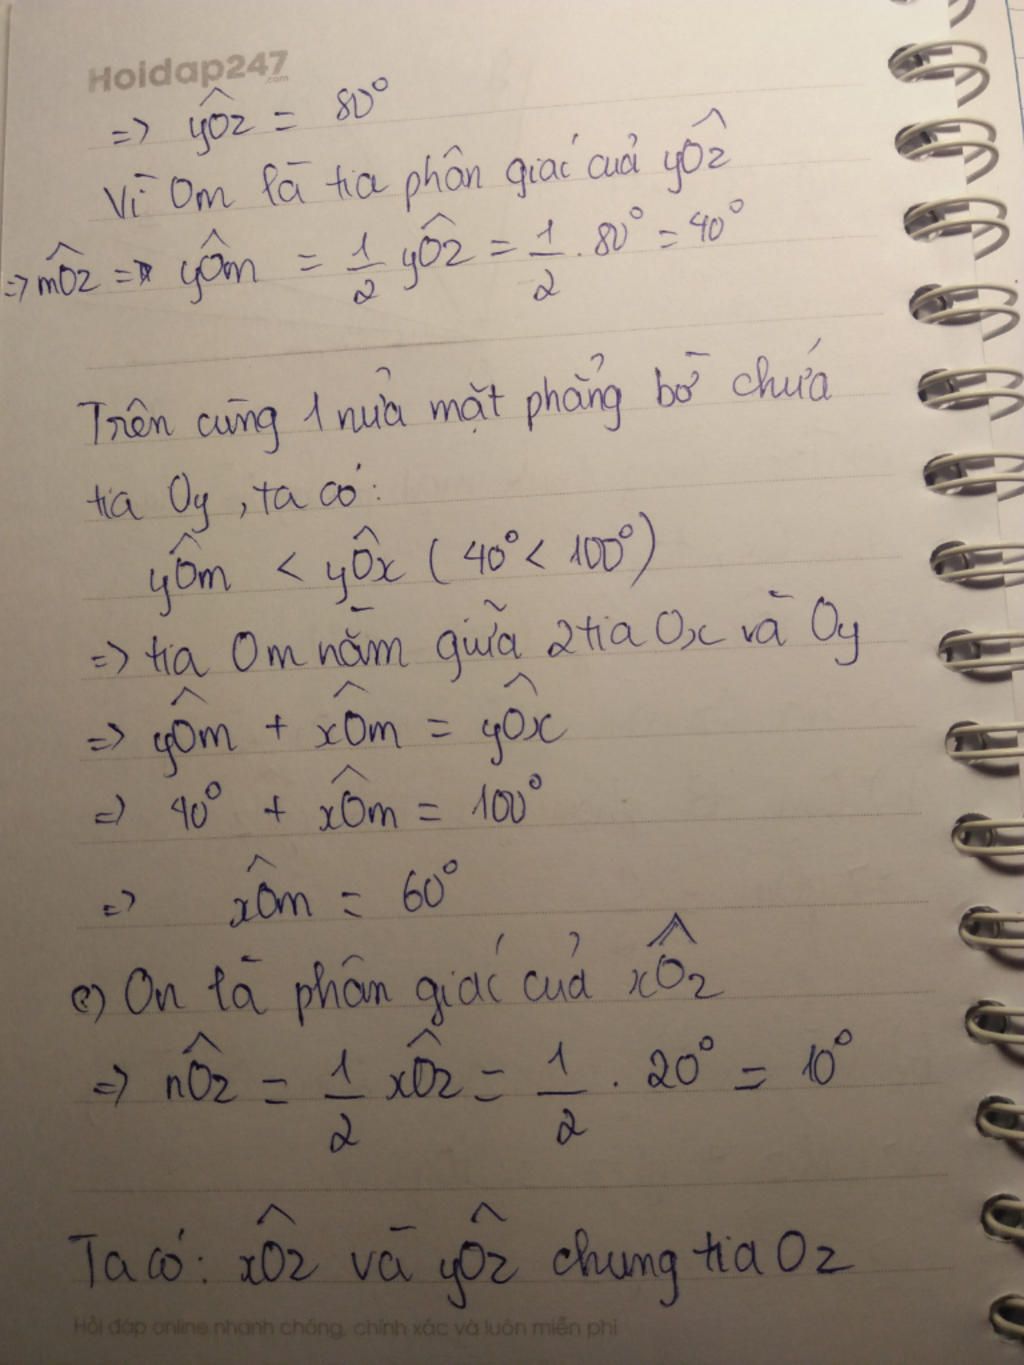 Hoidap247
.com
=> yÔz = 80°
Vì Om là tia phân giác của yÔz
=> mÔz = yÔm = 1/2 yÔz = 1/2 . 80° = 40°
Trên cùng 1 nửa mặt phẳng bờ chứa
tia Oy, ta có:
yÔm < yÔx (40° < 100°)
=> tia Om nằm giữa 2 tia Ox và Oy
=> yÔm + xÔm = yÔx
=> 40° + xÔm = 100°
=> xÔm = 60°
c) On là phân giác của xÔz
=> nÔz = 1/2 xÔz = 1/2 . 20° = 10°
Ta có: xÔz và yÔz chung tia Oz
Hỏi đáp online nhanh chóng, chính xác và luôn miễn phí